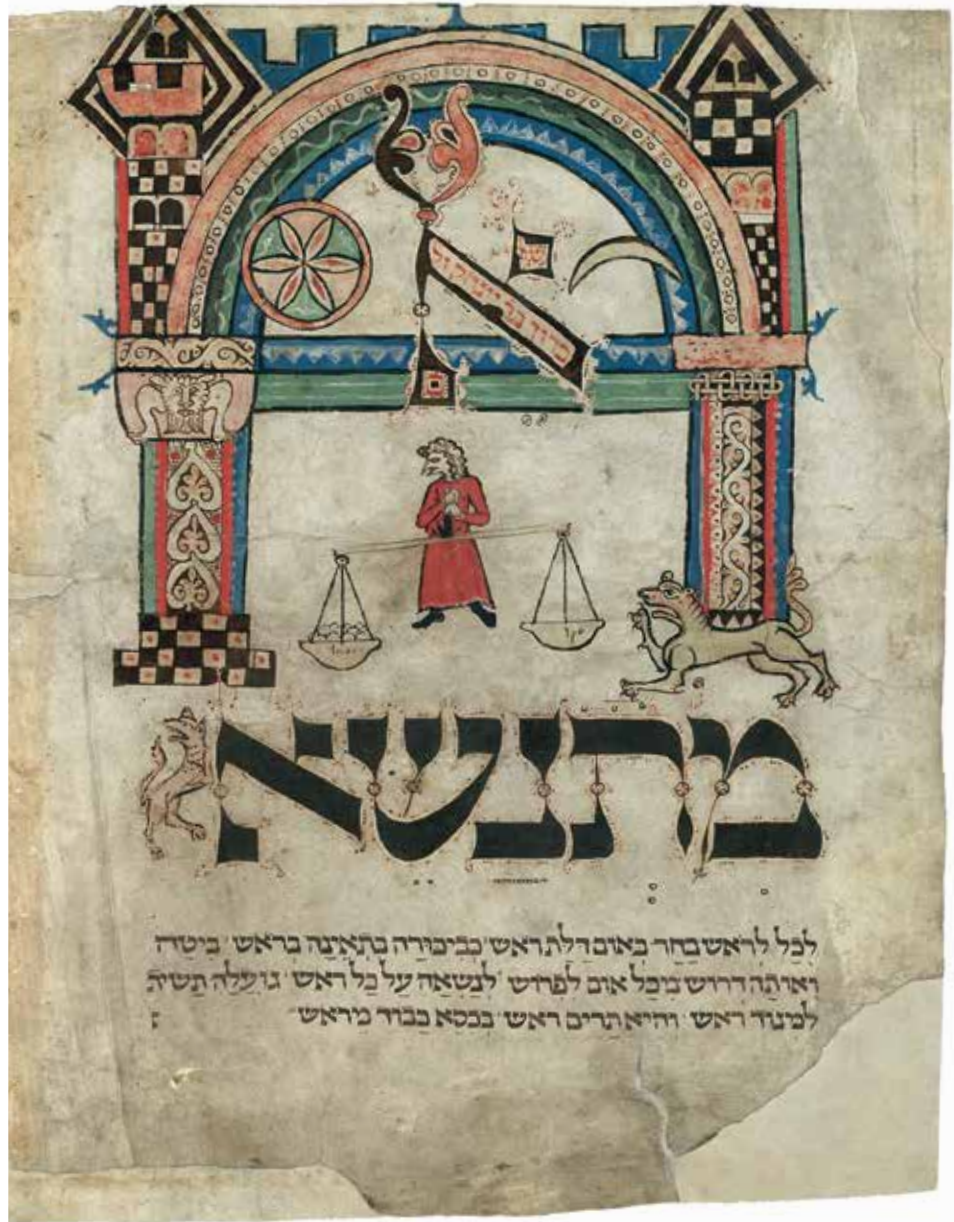 אל
ברוך בר יצחק
שקל
מתנשא
לכל לראש בחר באום דלת ראש כביכורה בתאינה בראש ביטה
ואותה דרוש מכל אום לפרוש לנשאה על כל ראש גו עלה תשיה
למנוד ראש והיא תרים ראש בכסא כבוד מראש